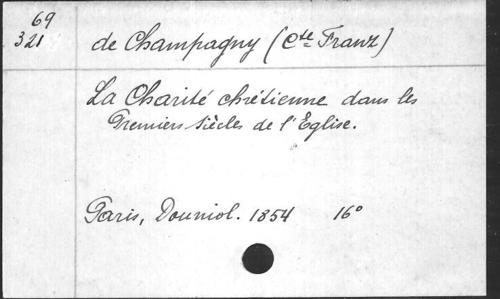 69
321
de Champagny (Cte Franz)
La Charité chrétienne dans les
Premiers siècles de l'Eglise.
Paris, Douniol. 1854 16°